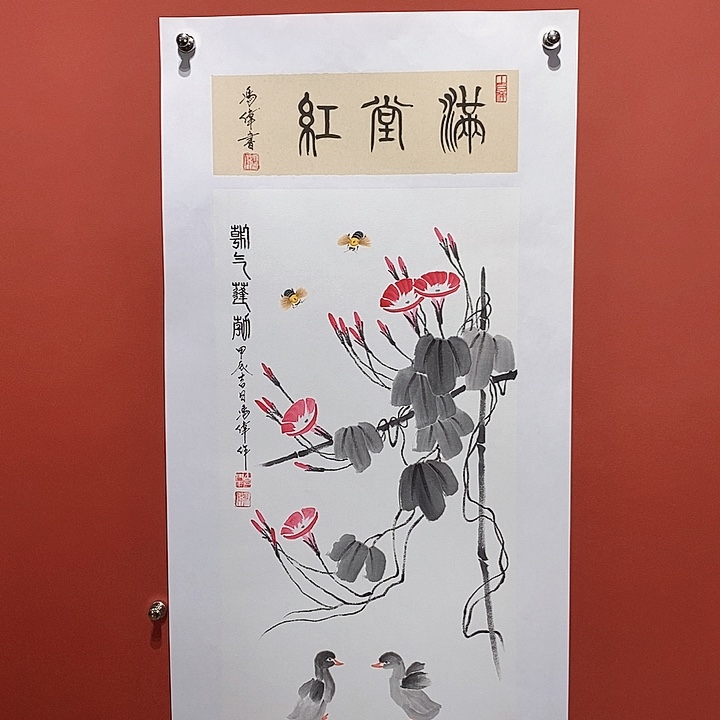 满堂红
冯伟书
朝气蓬勃
甲辰吉日冯伟作